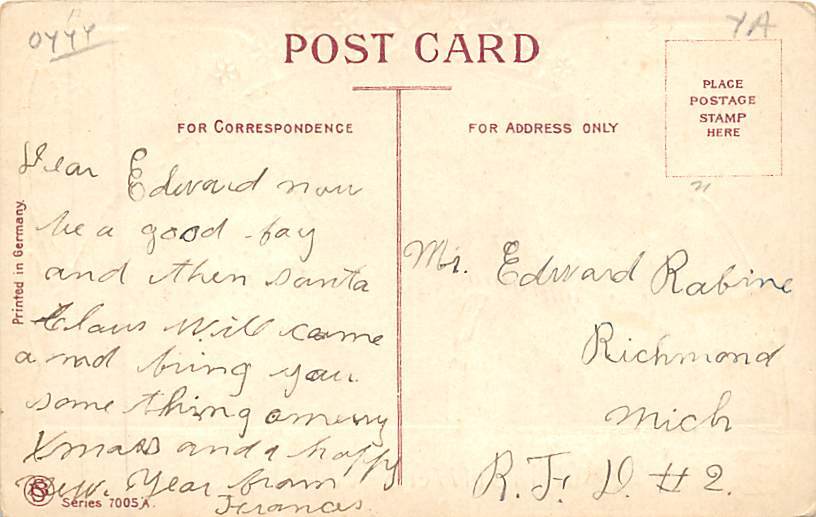 0444
YA
POST CARD
PLACE
POSTAGE
STAMP
HERE
FOR CORRESPONDENCE
FOR ADDRESS ONLY
Dear Edward now
be a good boy
and then santa
Claus will come
and bring you
some thing a merry
Xmass and a happy
New. Year from
Frances
Mr. Edward Rabine
Richmond
Mich
R. F. D. # 2.
Printed in Germany.
Series 7005 A.